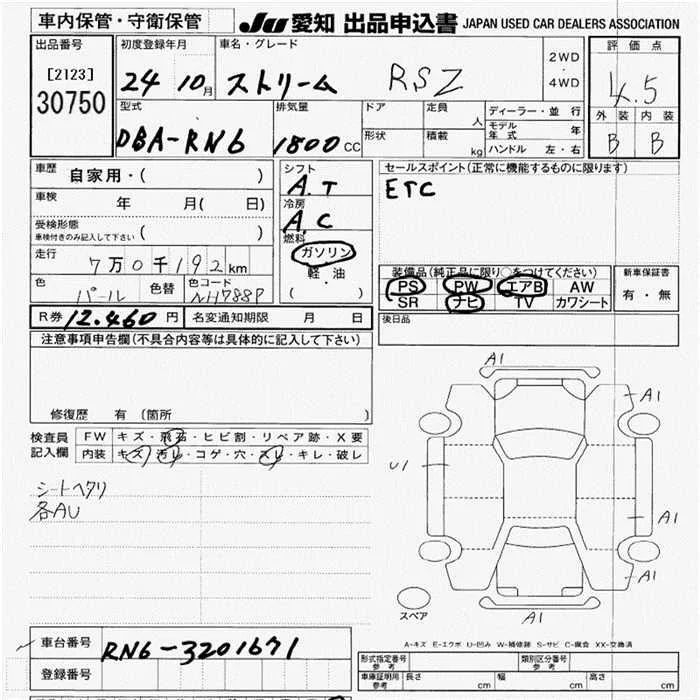 車内保管・守衛保管 JU 愛知 出品申込書 JAPAN USED CAR DEALERS ASSOCIATION
出品番号 初度登録年月 車名・グレード 2WD・4WD 評価点
[2123] 24 10月 ストリーム RSZ 4.5
30750 型式 排気量 ドア 定員 人 ディーラー・並行 外装 内装
DBA-RN6 1800CC 形状 積載 kg モデル年式 年 B B
ハンドル 左・右
車歴 自家用・( ) シフト A.T セールスポイント(正常に機能するものに限ります)
車検 年 月( 日) 冷房 A.C ETC
受検形態 ( )
車検付きのみ記入して下さい
燃料
走行 7万0千192km ガソリン 装備品(純正品に限り○をつけてください) 新車保証書
色 パール 色替 色コード NH788P 軽・油 PS PW エアB AW 有・無
( ) SR ナビ TV カワシート
R券 12.460円 名変通知期限 月 日 後日品
注意事項申告欄(不具合内容等は具体的に記入して下さい)
修復歴 有(箇所 )
検査員 FW キズ・飛石・ヒビ割・リペア跡・X要
記入欄 内装 キズ・汚レ・コゲ・穴・スレ・キレ・破レ
シートヘタリ
各AU
A1
A1
U1
A1
A1
A1
スペア
A-キズ E-エクボ U-凹み W-補修跡 S-サビ C-腐食 XX-交換済
車台番号 RN6-3201671
登録番号
形式指定番号 参考 類別区分番号 参考
車庫証明用 参考 長さ cm 幅 cm 高さ cm